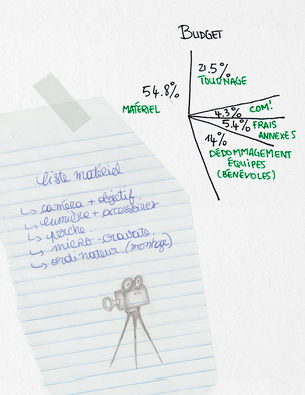 BUDGET
21.5%
TOURNAGE
54.8%
MATÉRIEL
4.3% COM!
5.4% FRAIS
ANNEXES
14%
DÉDOMMAGEMENT
ÉQUIPES
(BÉNÉVOLES)
Liste matériel
↳ caméra + objectif
↳ lumière + accessoires
↳ perche
↳ micro-cravate
↳ ordinateur (montage)